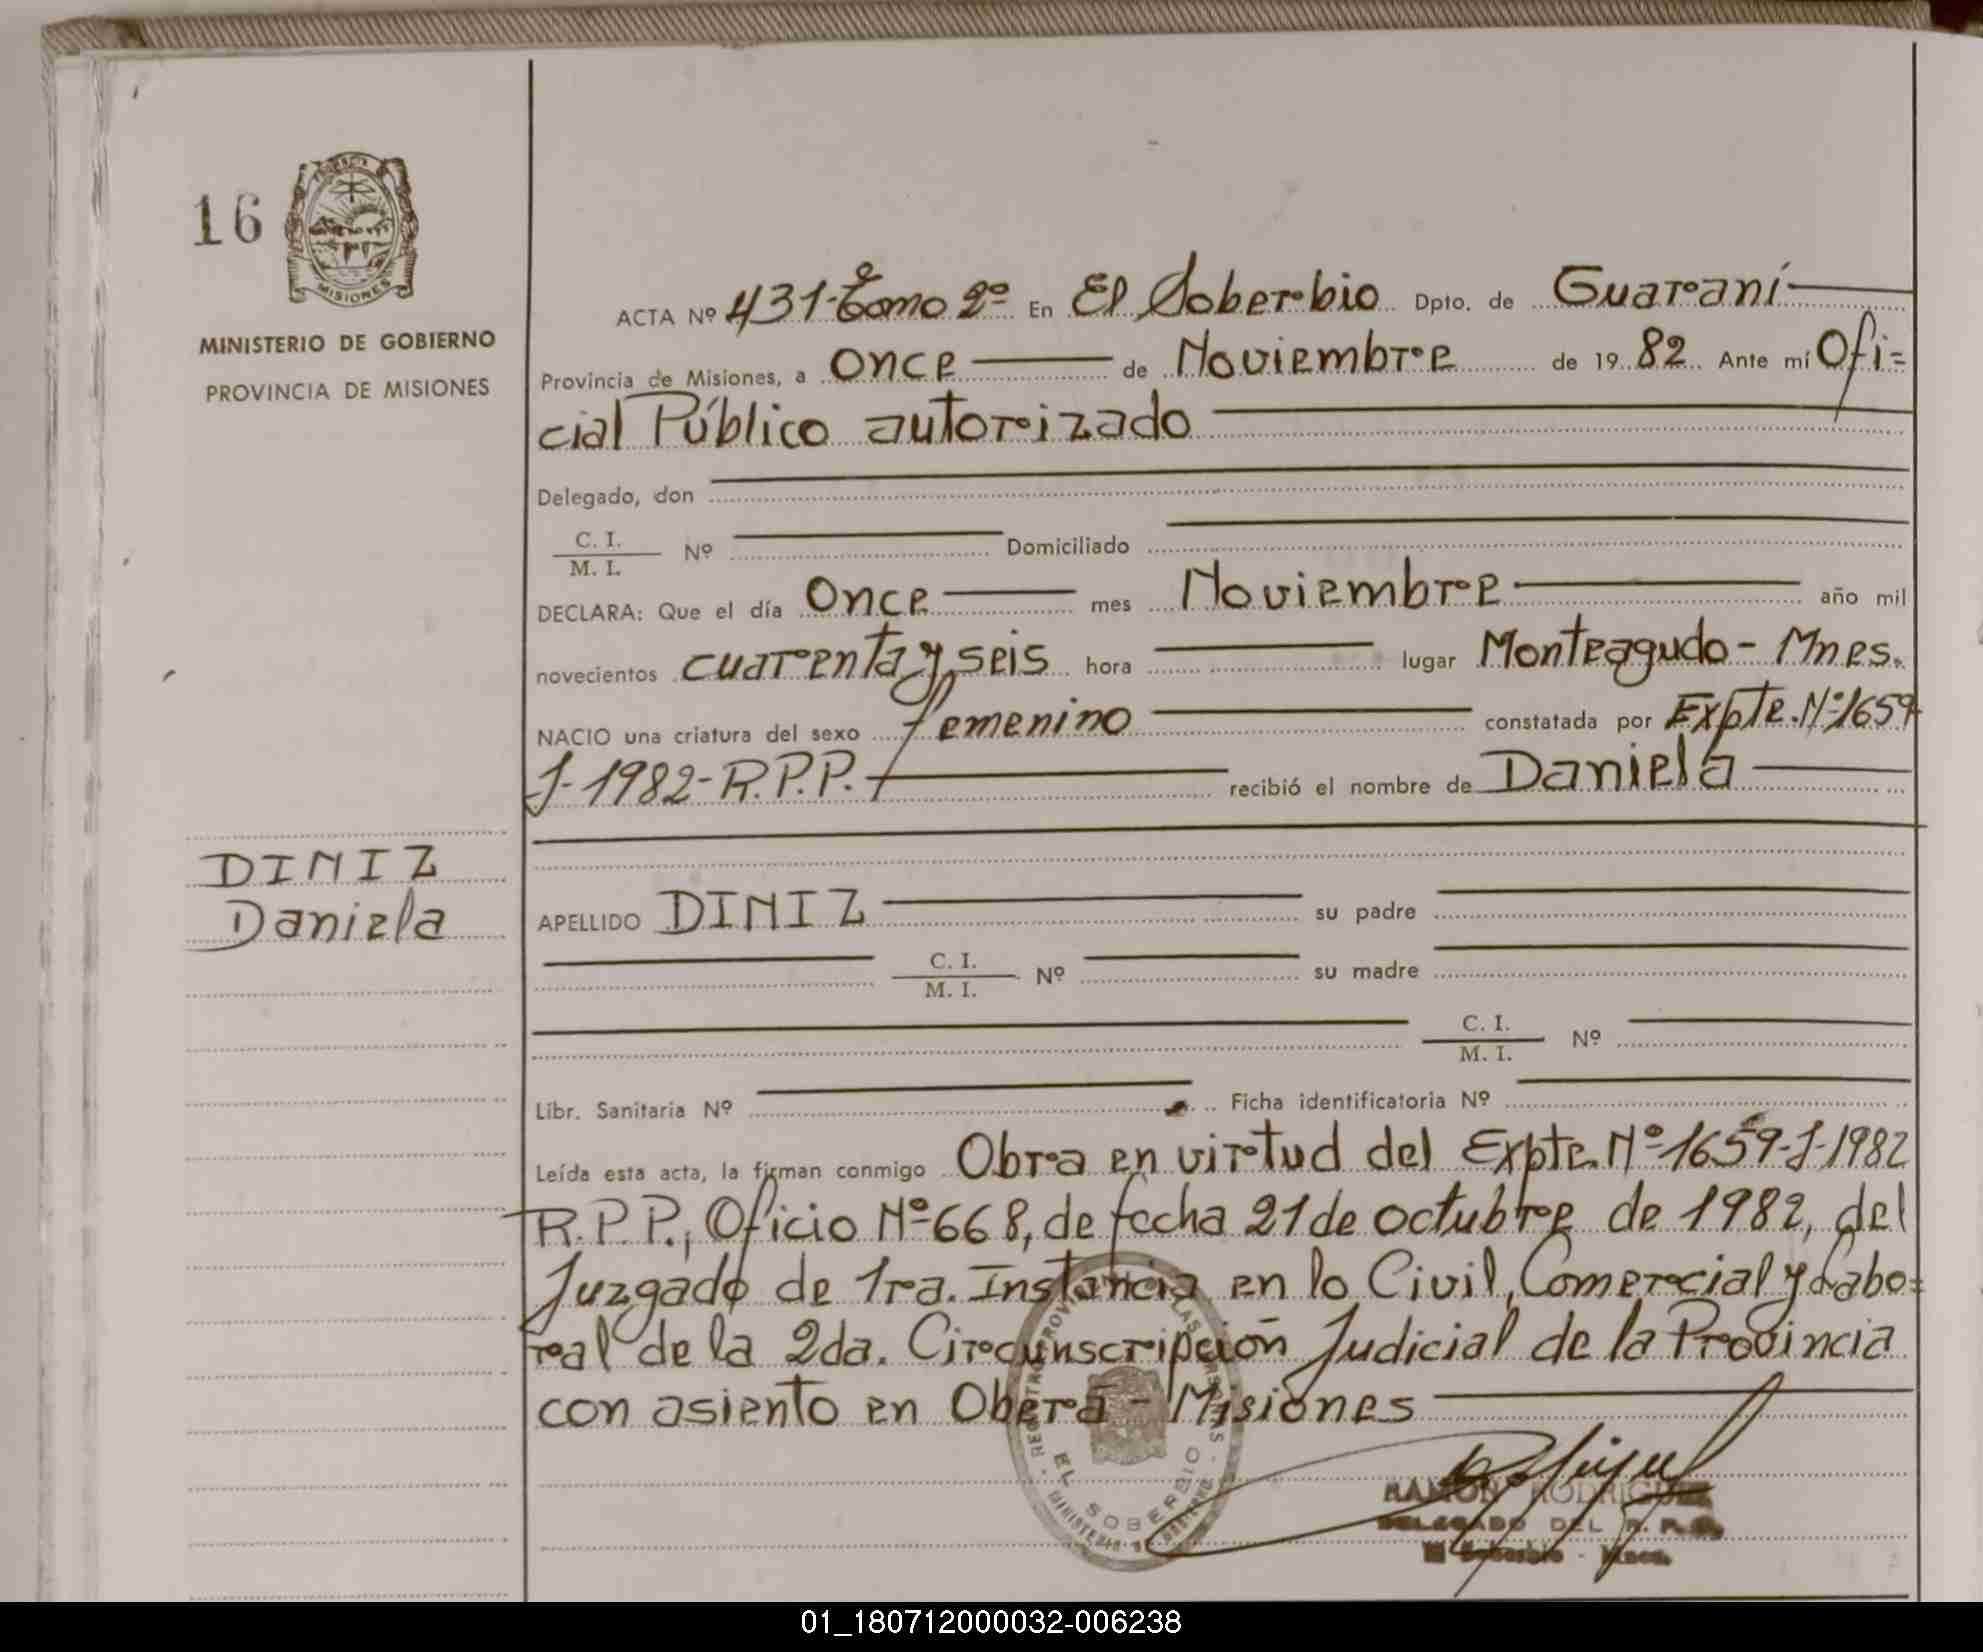 16
MISIONES
MINISTERIO DE GOBIERNO
PROVINCIA DE MISIONES
ACTA Nº 431-Tomo 2º En El Soberbio Dpto. de Guaraní
Provincia de Misiones, a Once de Noviembre de 19 82 Ante mí Ofi=
cial Público autorizado
Delegado, don
C. I.
M. I. Nº Domiciliado
DECLARA: Que el día Once mes Noviembre año mil
novecientos cuarenta y seis hora lugar Monteagudo - Mnes.
NACIO una criatura del sexo femenino constatada por Expte. Nº 1659
J-1982-R.P.P. recibió el nombre de Daniela
DINIZ
Daniela
APELLIDO DINIZ su padre
C. I.
M. I. Nº su madre
C. I.
M. I. Nº
Libr. Sanitaria Nº Ficha identificatoria Nº
Leída esta acta, la firman conmigo Obra en virtud del Expte. Nº 1659-J-1982
R.P.P., Oficio Nº 668, de fecha 21 de octubre de 1982, del
Juzgado de 1ra. Instancia en lo Civil, Comercial y Labo=
ral de la 2da. Circunscripción Judicial de la Provincia
con asiento en Oberá - Misiones
EL SOBERBIO
RAMON RODRIGUEZ
DELEGADO DEL R. P. P.
El Soberbio - Mnes.
01_180712000032-006238